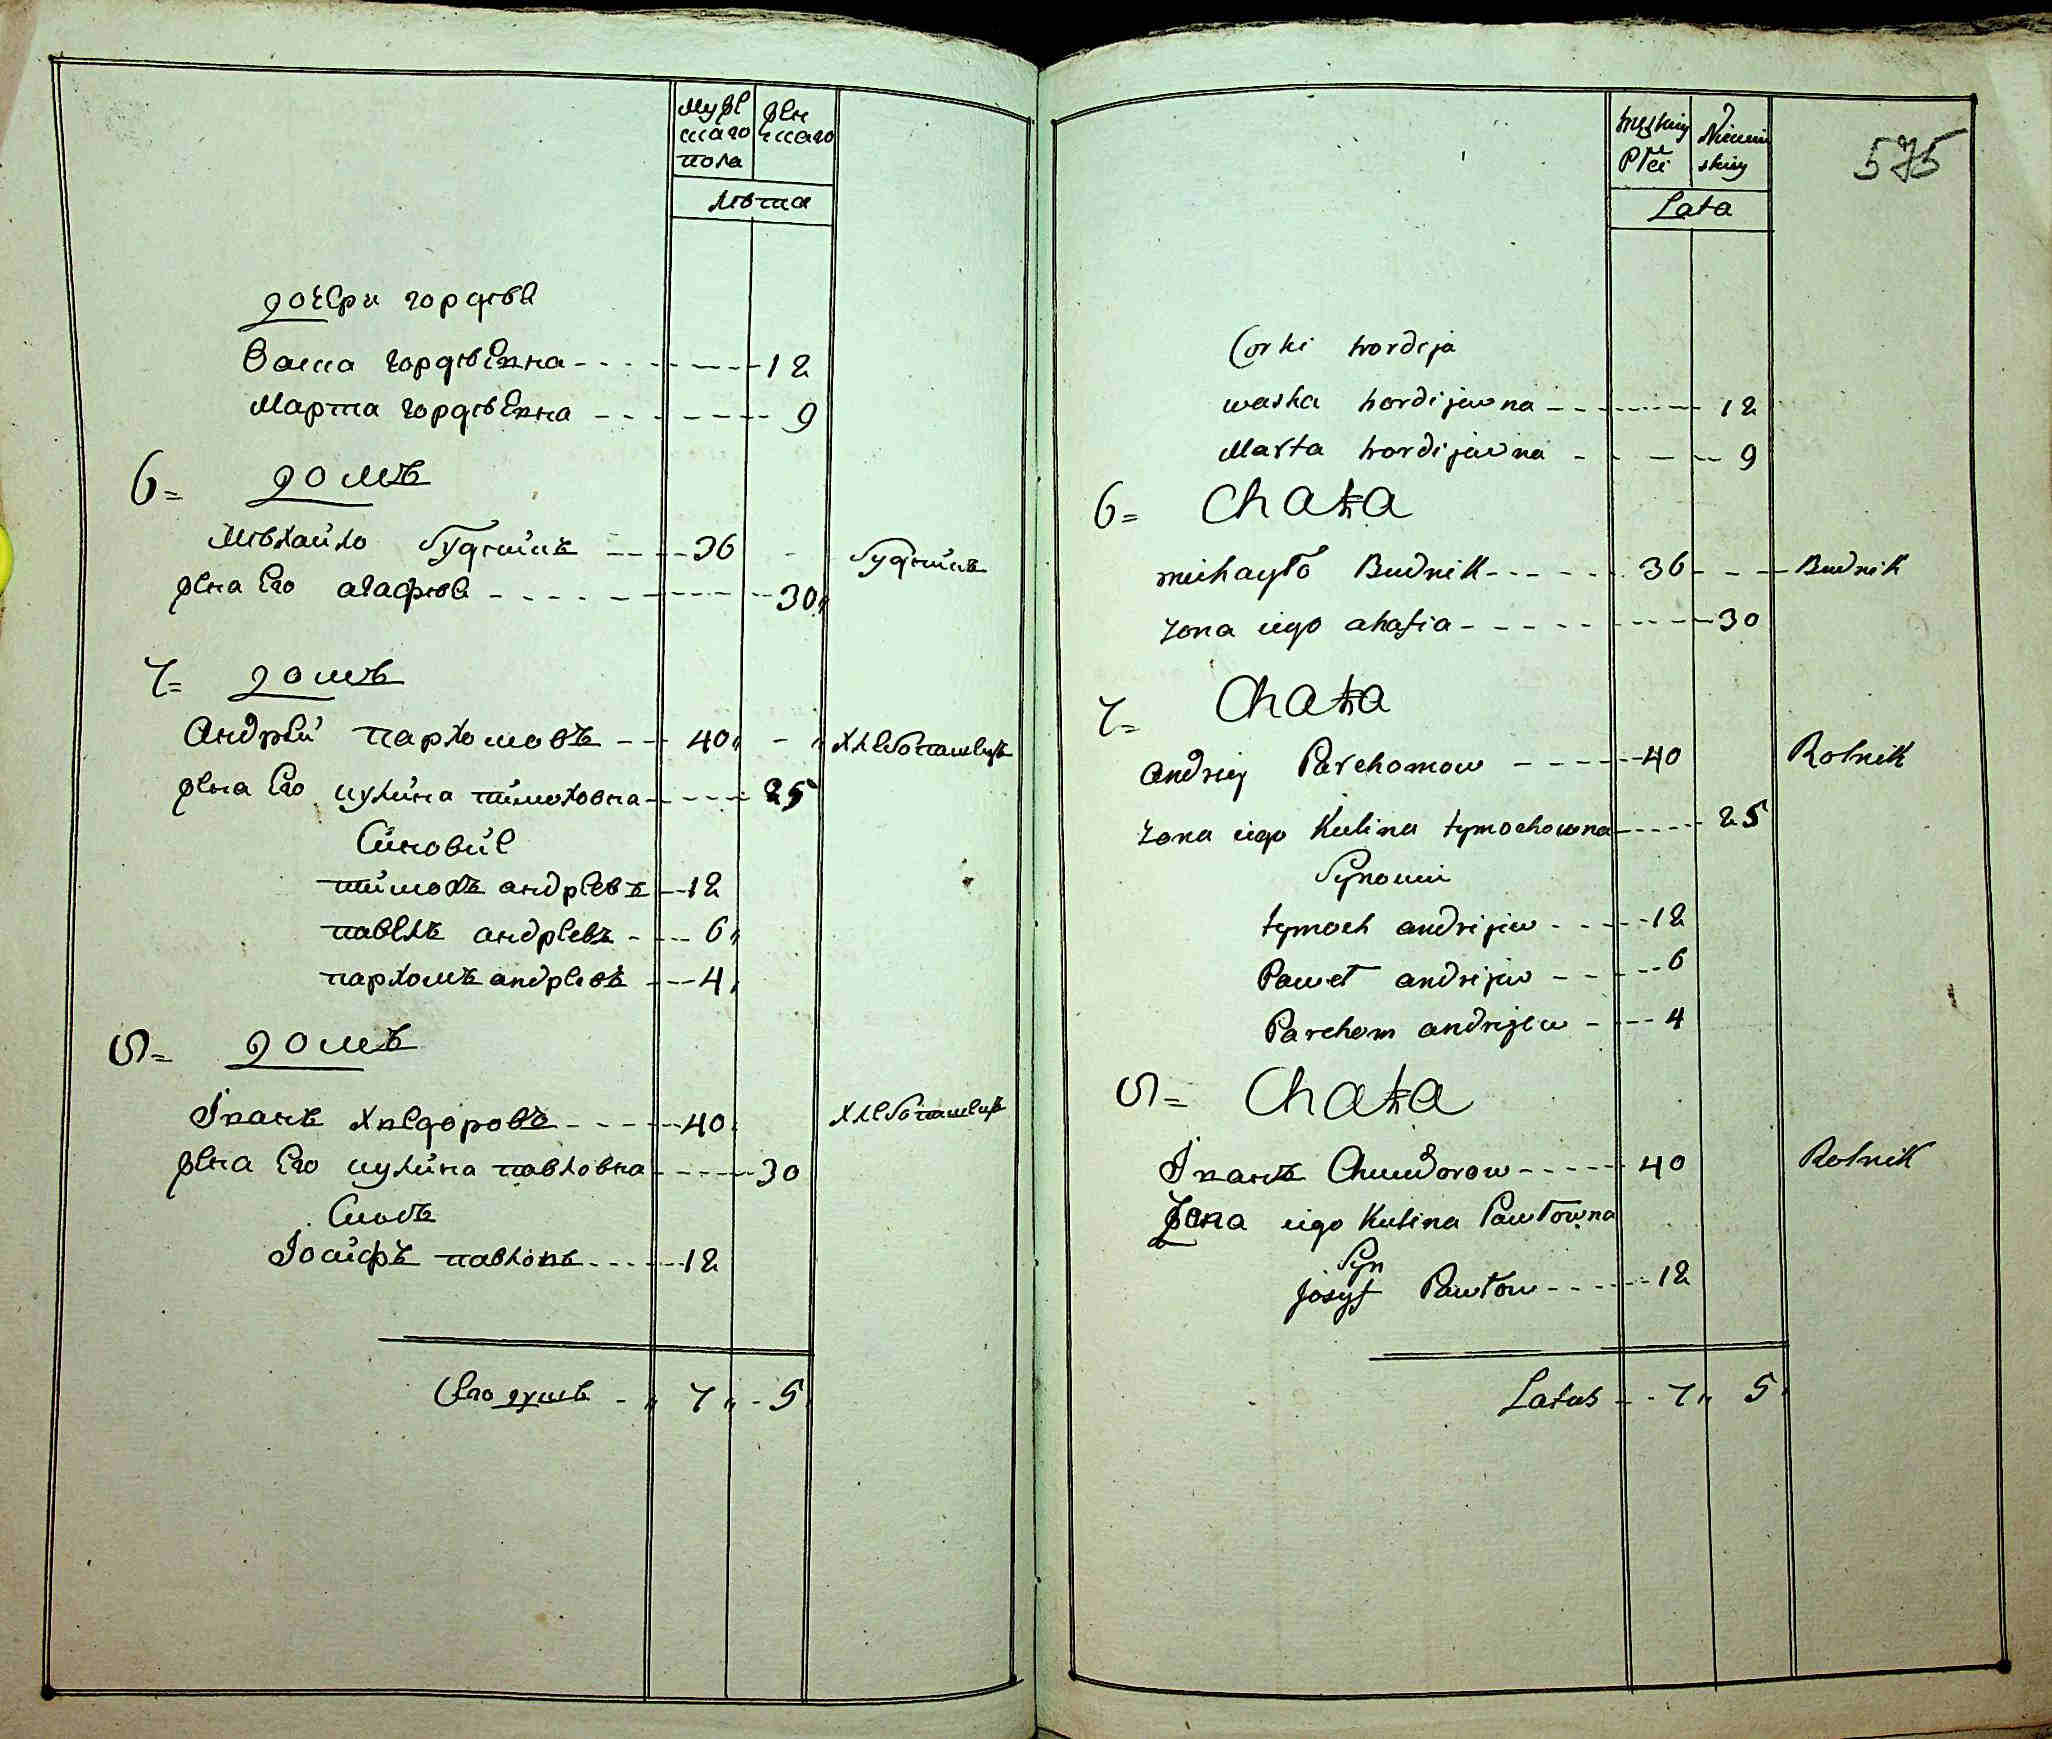 Мужескаго пола
Женскаго
Лѣта
дочери гордѣѣ
Васса гордѣевна 12
Марта гордѣевна 9
6= домъ
Мѣхайло будникъ 36 будникъ
жена его агафѣѣ 30
7= домъ
Андрей пархомовъ 40 хлебопашецъ
жена его кулина тимоховна 25
Синовие
тимохъ андреевъ 12
павелъ андреевъ 6
пархомъ андреевъ 4
8= домъ
Іванъ хведоровъ 40 хлебопашецъ
жена его кулина павловна 30
Синъ
Іосифъ павловъ 12
душъ 7 5
męskiey Płci
Niewieskiey
Lata
575
Corki hordija
waska hordijewna 12
Marta hordijewna 9
6= Chata
michayło Budnik 36 Budnik
zona iego ahafia 30
7= Chata
andriy Parchomow 40 Rolnik
zona iego Kulina tymochowna 25
Synowie
tymoch andrijew 12
Paweł andrijew 6
Parchom andrijew 4
8= Chata
Іванъ Chwedorow 40 Rolnik
Zona iego Kulina Pawłowna
Syn
Josyf Pawłow 12
Latus 7 5